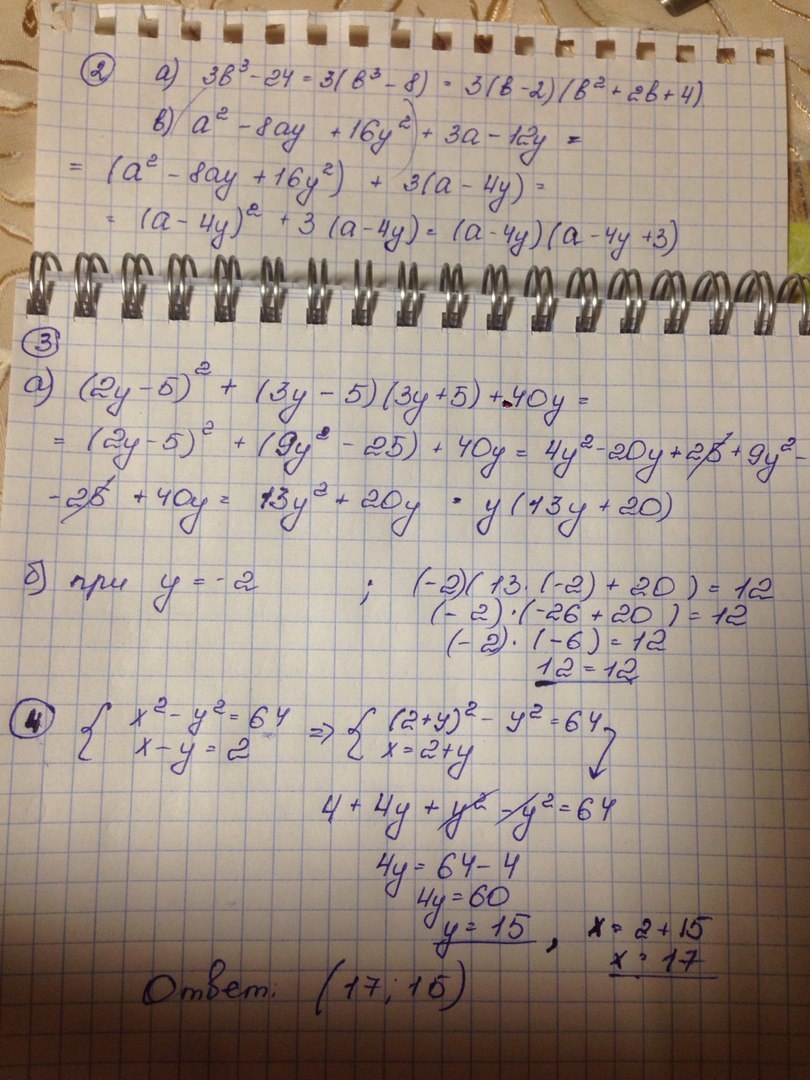 2 а) 3в³ - 24 = 3(в³ - 8) = 3(в-2)(в² + 2в + 4)
в) а² - 8ay + 16y² + 3a - 12y =
= (a² - 8ay + 16y²) + 3(a - 4y) =
= (a - 4y)² + 3(a - 4y) = (a - 4y)(a - 4y + 3)
3
а) (2y - 5)² + (3y - 5)(3y + 5) + 40y =
= (2y - 5)² + (9y² - 25) + 40y = 4y² - 20y + 25 + 9y² -
- 25 + 40y = 13y² + 20y = y(13y + 20)
б) при y = -2 ; (-2)(13·(-2) + 20) = 12
(-2)·(-26 + 20) = 12
(-2)·(-6) = 12
12 = 12
4 { x² - y² = 64 => { (2+y)² - y² = 64
x - y = 2 x = 2 + y
4 + 4y + y² - y² = 64
4y = 64 - 4
4y = 60
y = 15 , x = 2 + 15
x = 17
Ответ: (17; 15)